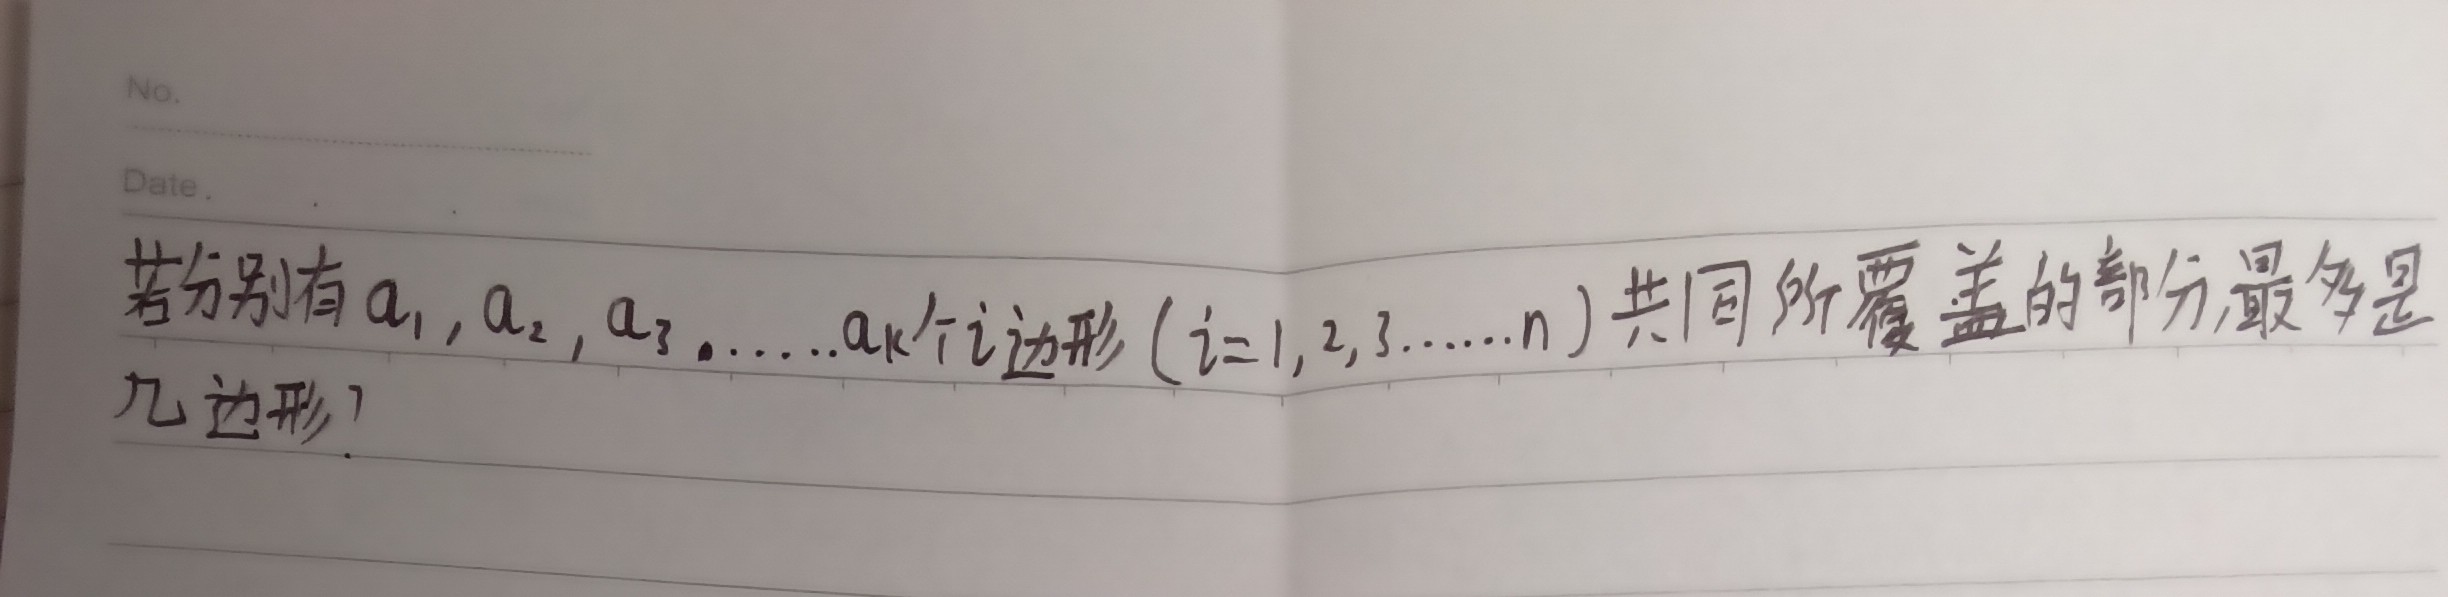 No.
Date.
若分别有a₁,a₂,a₃.……aₖ个i边形(i=1,2,3……n)共同所覆盖的部分,最多是
几边形?